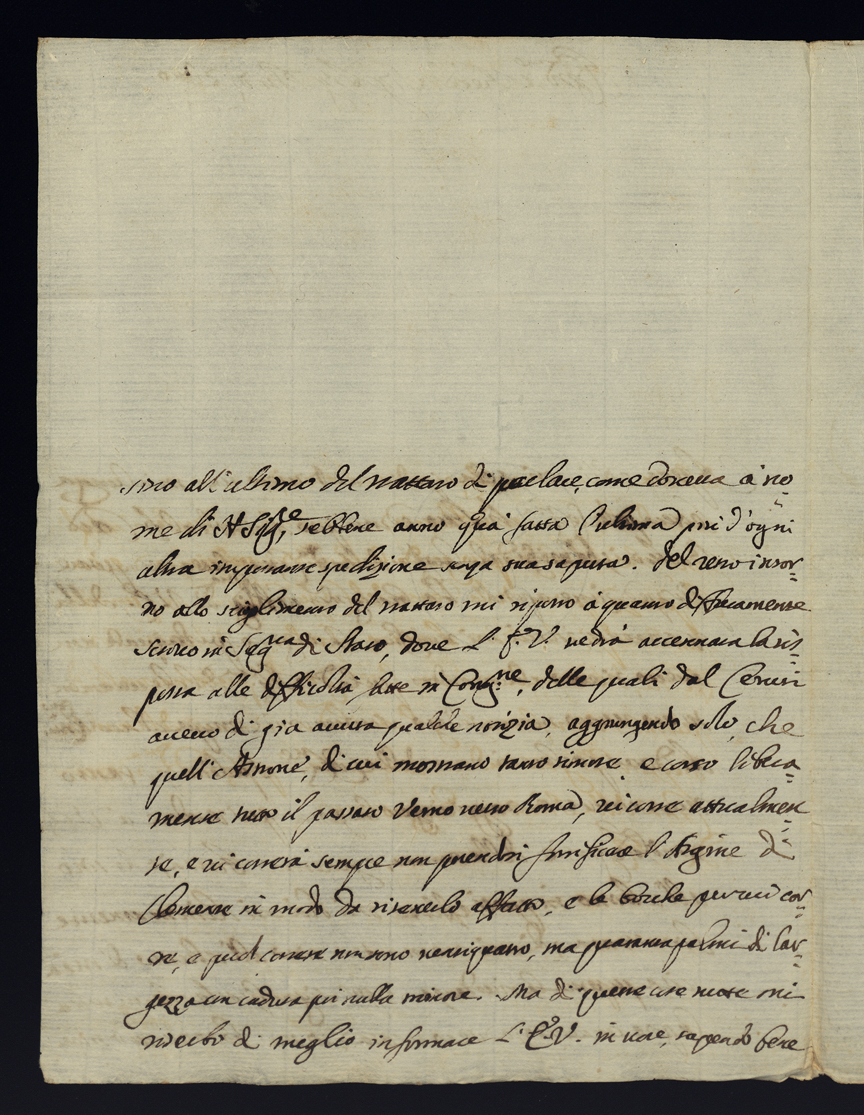 sino all'ultimo del trattato di parlare, come doveva à no=
me di N. Sig.re, sebbene anno quà fatta l'ultima più d'ogni
altra importante spedizione senza sua saputa. Del resto intor=
no allo scioglimento del trattato mi riporto à quanto diffusamente
scrivo in Seg.ria di Stato, dove L'E.V. vedrà accennata la ris=
posta alle difficoltà fatte in Cong.ne, delle quali dal Cerati
avevo di già avuta qualche notizia, aggiungendo solo, che
quell'Astrone, di cui mostrano tanto timore, e corso libera=
mente tutto il passato Verno verso Roma, vi corre attualmen=
te, e vi correrà sempre non potendosi fortificare l'Argine di
Clemente in modo da ritenerlo affatto, e le bocche per cui cor=
re, e può correre non sono ventiquattro, ma quaranta palmi di lar=
gezza con caduta più nulla minore. Ma di queste cose tutte mi
riserbo di meglio informare L'E.V. in voce, sapendo bene